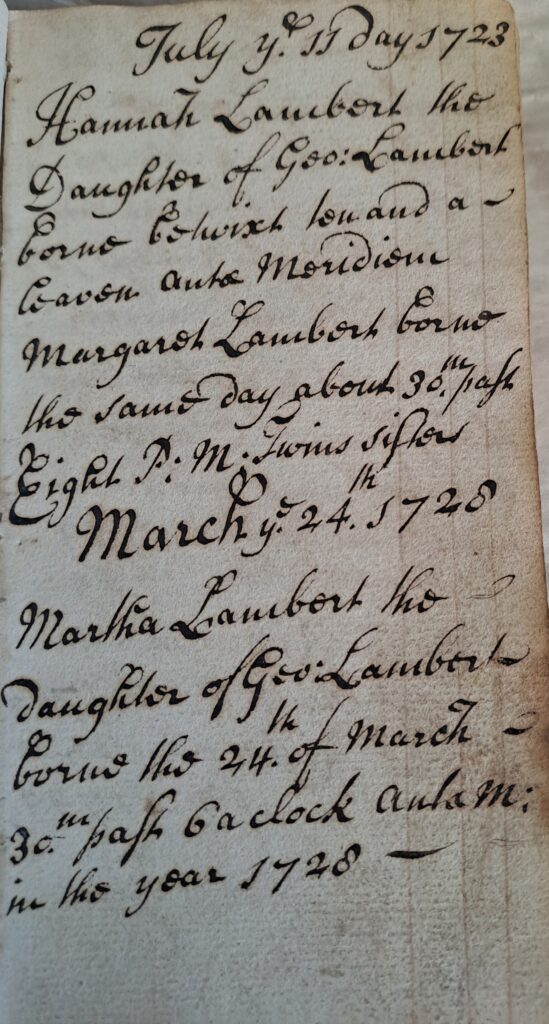 July ye. 11 Day 1723
Hannah Lambert the
Daughter of Geo: Lambert
borne betwixt ten and a-
leaven ante Meridiem
Margaret Lambert borne
the same day about 30.m past
Eight P: M: Twins sisters
March ye. 24.th 1728
Martha Lambert the
daughter of Geo: Lambert
borne the 24.th of March
30.m past 6 a clock anta M:
in the year 1728